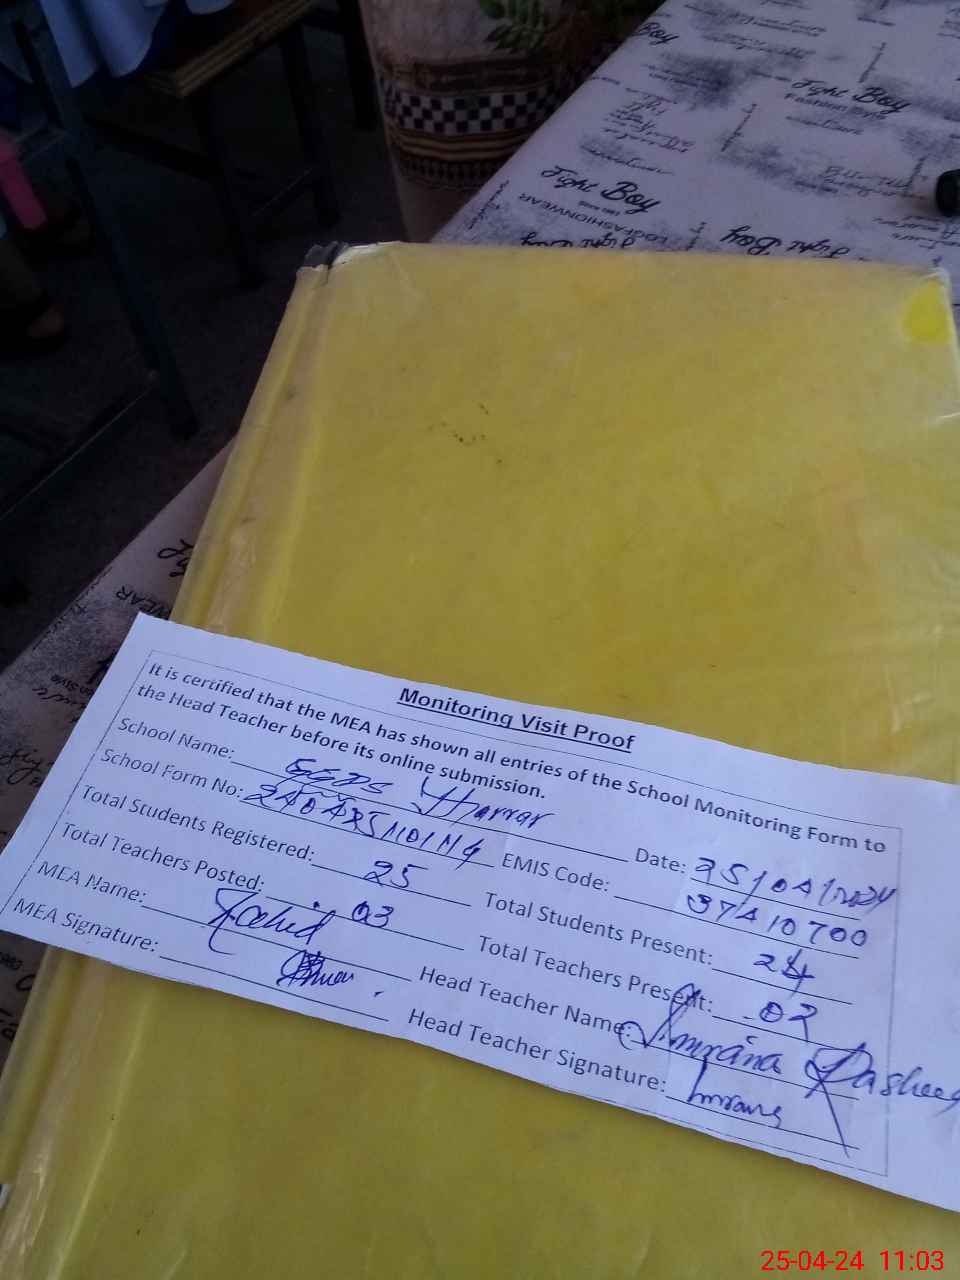 Fight Boy
Fashion Style
Fight Boy
LOGFASHIONWEAR
Fight Boy
Monitoring Visit Proof
It is certified that the MEA has shown all entries of the School Monitoring Form to
the Head Teacher before its online submission.
School Name: GGPS Date: 25/04/2024
School Form No: EMIS Code: 37410700
Total Students Registered: 25 Total Students Present: 24
Total Teachers Posted: 03 Total Teachers Present: 02
MEA Name: Zahid Head Teacher Name: Imrana Rasheed
MEA Signature: Head Teacher Signature: Imrana
25-04-24 11:03